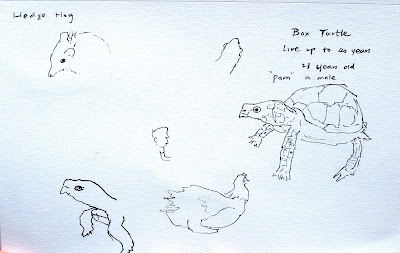 Hedge Hog
Box Turtle
Live up to 40 years
23 years old
"Pam" a male